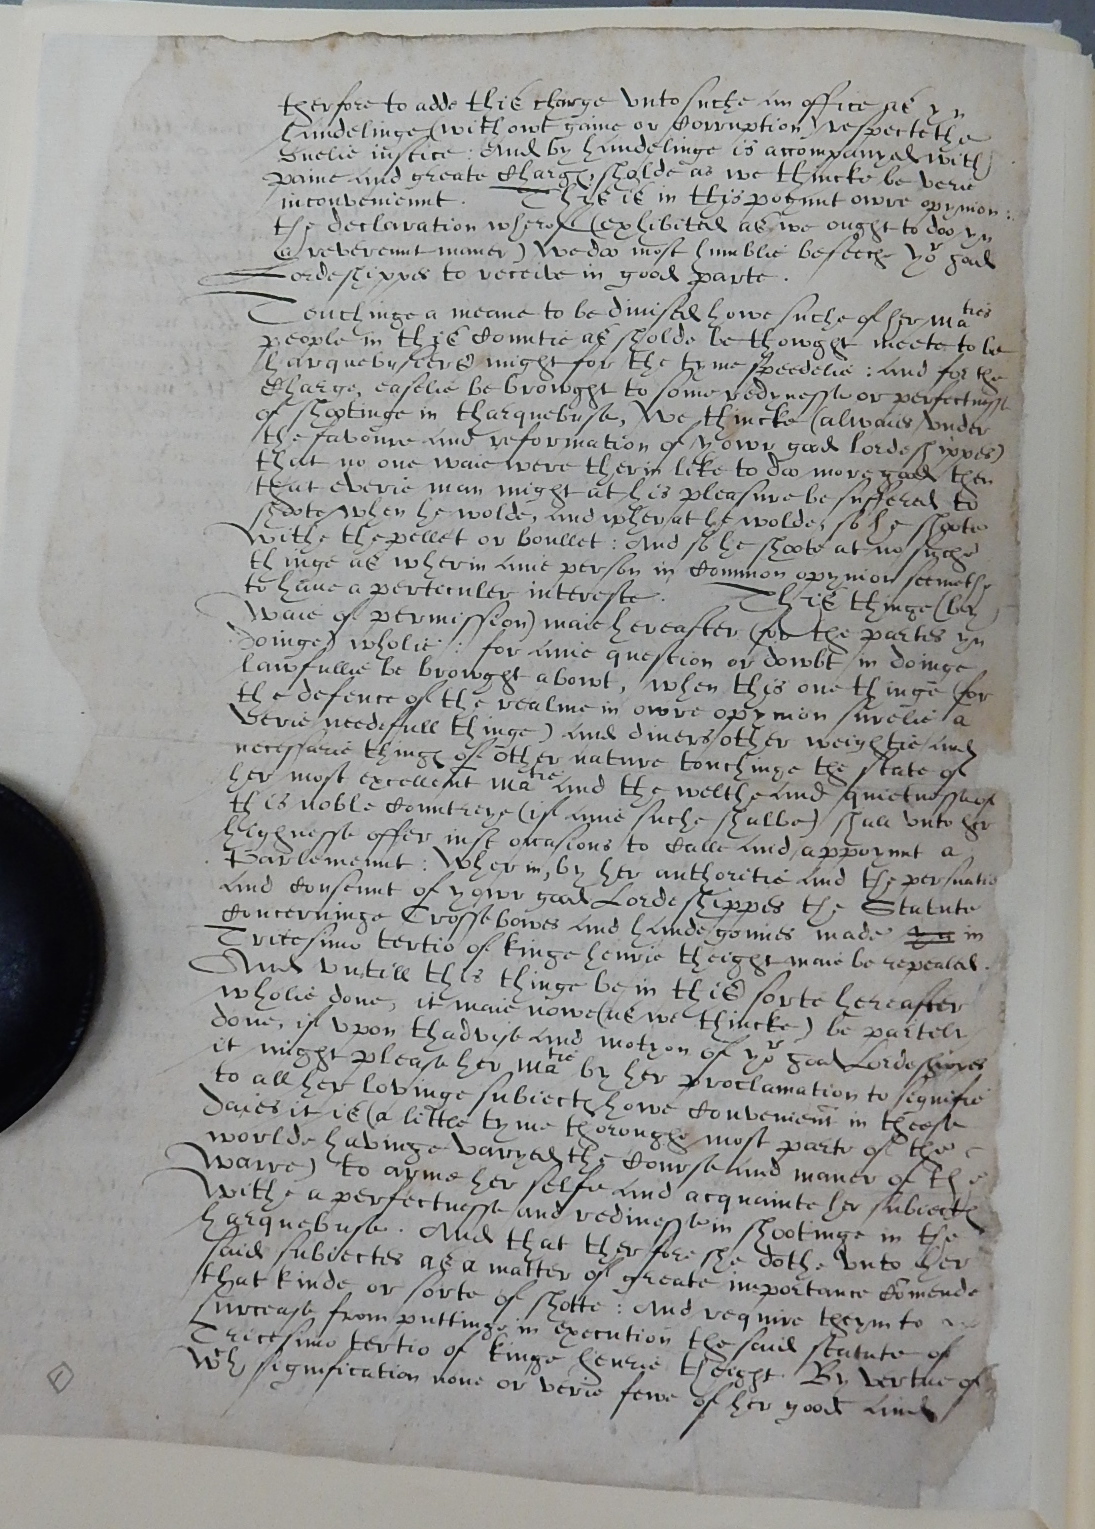 therfore to adde this charge vnto suche an office as yn
handelinge (without gaine or Corruption) respecte the
onelie iustice : And by handelinge is accompanyed with
paine and greate Charge, sholde as we thincke be verie
inconvenient. This is in this poynnt owre opynion :
the declaration wherof (exhibited as we ought to doo yn
a reverennt maner) We doo most humblie beseche yor good
Lordeshippes to receive in good parte .
Touchinge a meane to be divised howe suche of her maties
people in this Countie as sholde be thowght meete to be
harquebusiers might for the tyme speedelie : and for the
Charge, easelie be browght to some redynesse or perfectnesse
of shootinge in tharquebuse, We thincke (alwaies vnder
the favoure and reformation of yowr good lordeshippes)
that no one waie were therin like to doo more good then
that everie man might at his pleasure be suffered to
shoote when he wolde, and wherat he wolde, so he shoote
withe the pellet or boullet : And so he shoote at no suche
thinge as wherin anie person in Common opynion seemethe
to haue a perticuler intereste. This thinge (by
waie of permission) maie hereafter (for the partes yn
doinge) wholie : for anie question or dowbt in doinge
lawfullie be browght abowt, when this one thinge (for
the defence of the realme in owre opynion surelie a
verie needefull thinge) and divers other weightie and
necessarie things of other nature touchinge the state of
her most excellent matie and the welthe and quietnesse of
this noble Countreye (if anie suche shalbe) shall vnto her
highnesse offer iust occasions to Calle and appoynnt a
Parlement : Wherin, by her authoritie and the perswatio
and Consennt of yowr good Lordeshippes the Statute
Concerninge Crossebowes and handegonnes made yn in
Tricesimo tertio of Kinge henrie theight maie be repealed.
And vntill this thinge be in this sorte hereafter
wholie done, it maie nowe (as we thincke) be partely
done, if vpon thadvise and motyon of yor good Lordeshippes
it might please her matie by her proclamation to signifie
to all her lovinge subiects howe Convenient in theese
daies it is (a little tyme thoroughe most parte of the
worlde havinge varyed the Course and maner of the
warre) to arme her selfe and acquainte her subiects
withe a perfectnesse and redinesse in shootinge in the
harquebuse. And that therfore she dothe vnto her
said subiectes as a matter of greate importance Comende
that kinde or sorte of shotte : And require theym to
surcease from puttinge in execution the said statute of
Tricesimo tertio of Kinge henrie theight. By vertue of
wch signification none or verie fewe of her good and